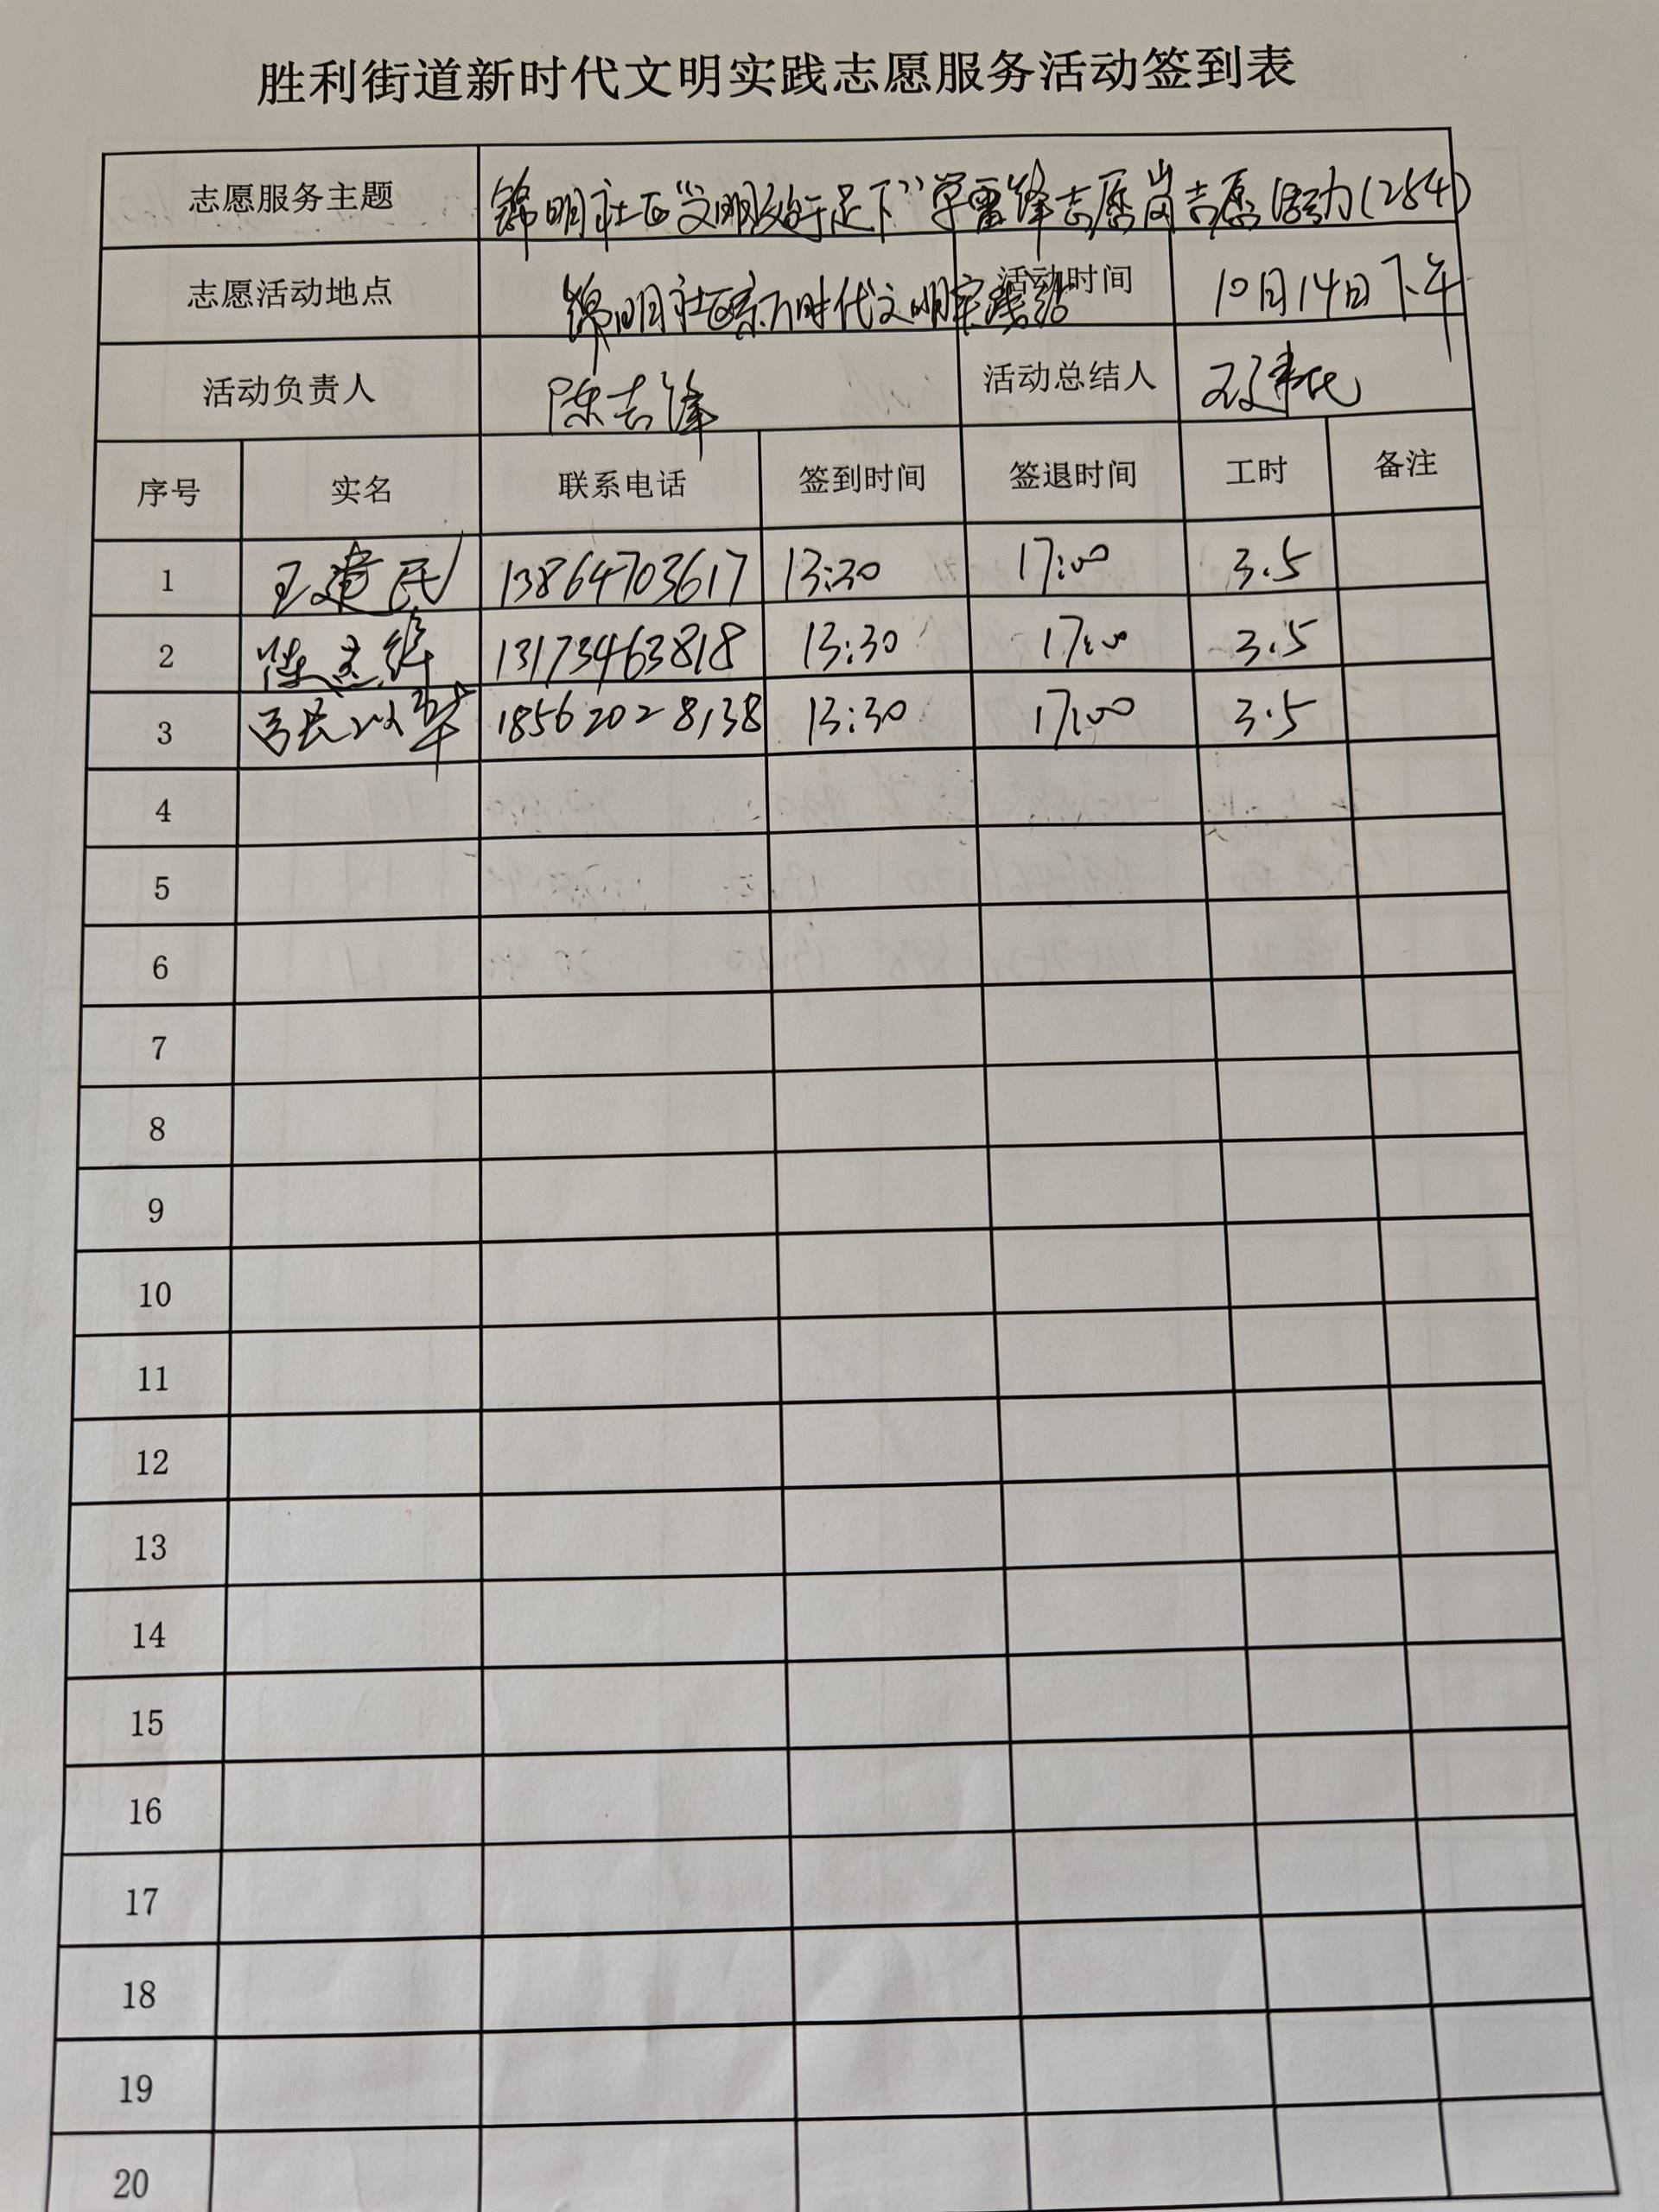 胜利街道新时代文明实践志愿服务活动签到表
志愿服务主题 锦明社区“文明始于足下”学雷锋志愿岗志愿活动(254)
志愿活动地点 锦明社区新时代文明实践站 活动时间 10月14日下午
活动负责人 陈志锋 活动总结人 王建民
序号 实名 联系电话 签到时间 签退时间 工时 备注
1 王建民 13864703617 13:30 17:00 3.5
2 陈志锋 13173463818 13:30 17:00 3.5
3 18562028138 13:30 17:00 3.5
4
5
6
7
8
9
10
11
12
13
14
15
16
17
18
19
20